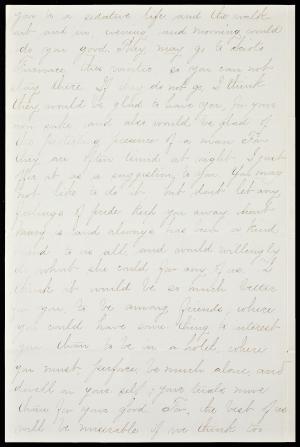 you in a sedative life and the walk
out and in, evening and morning would
do you good. They may go to
Furnace this winter so you can not
stay there. If they do not go, I think
they would be glad to have you, for your
own sake and also would be glad of
the protecting presence of a man. For
they are often timid at night. I just
offer it as a suggestion, to you. You may
not like to do it but don't let any
feelings of pride keep you away
Mary is and always has been a kind
friend to us all and would willingly
do what she could for any of us. I
think it would be so much better
for you, to be among friends, where
you could have some thing to interest
you than to be in a hotel, where
you must, perforce, be much alone, and
dwell on your self & your trials more
than for your good. For, the best of us
will be miserable if we think too